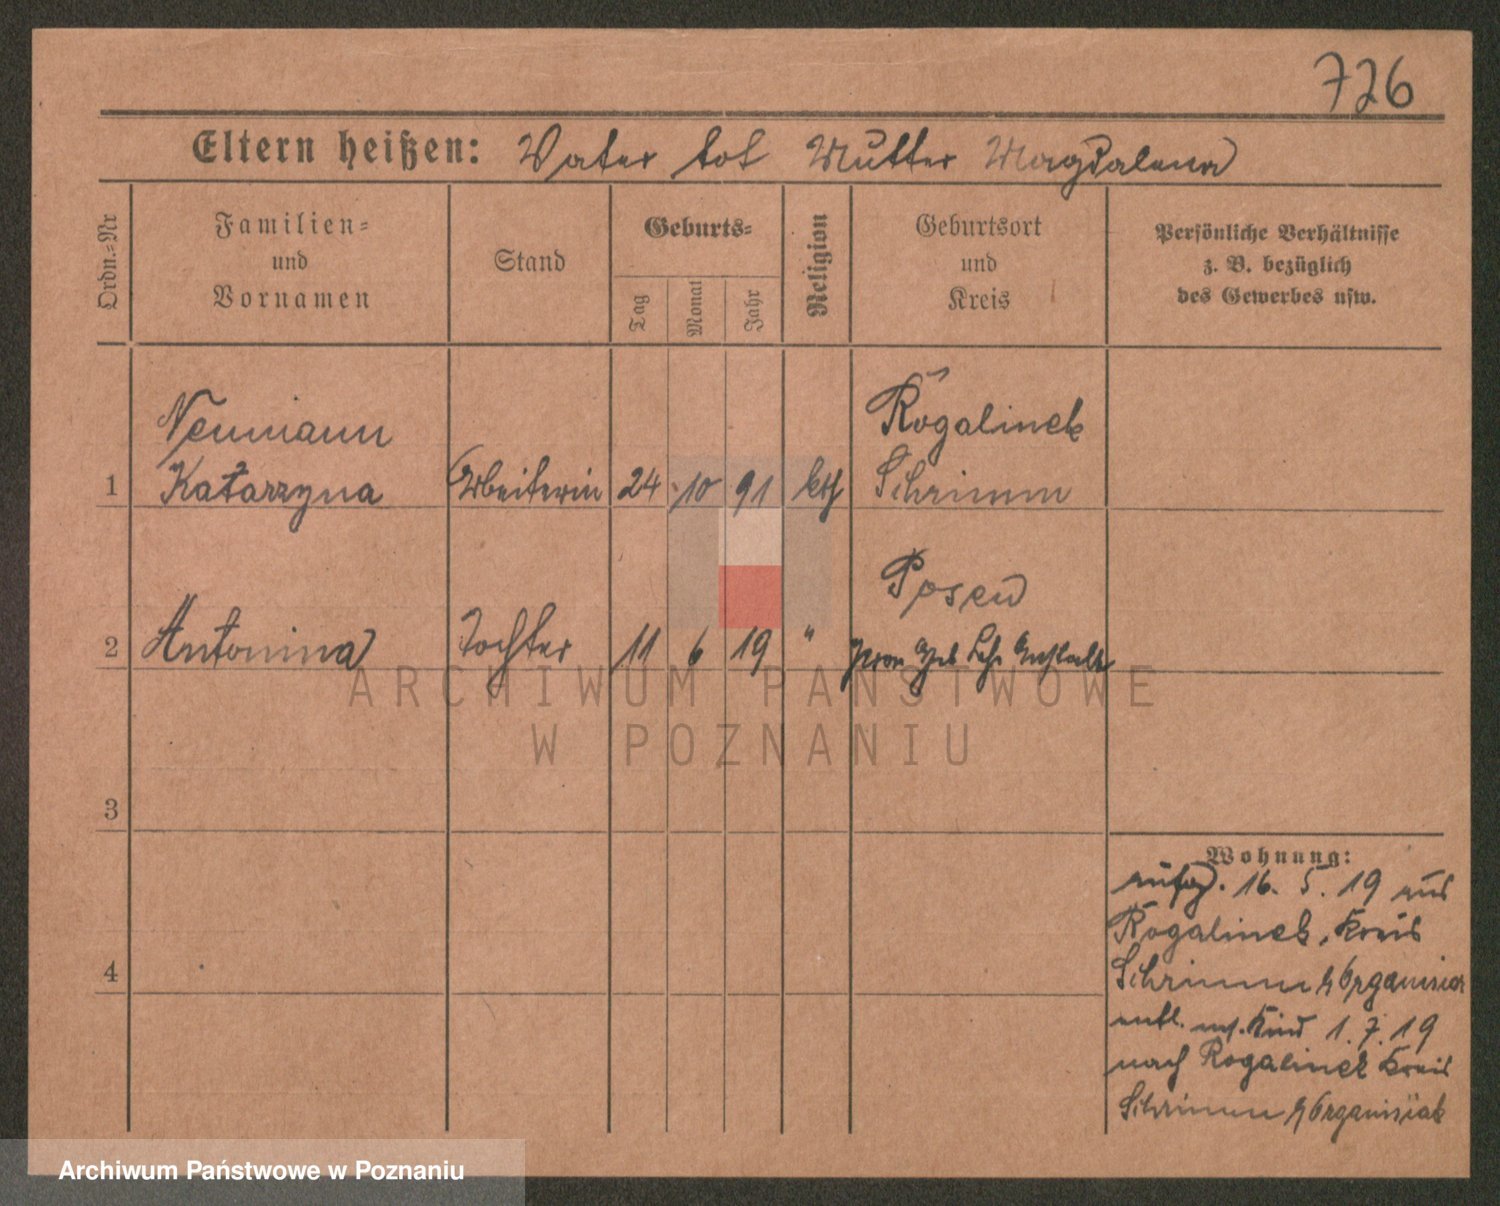 726
Eltern heißen: Vater tot Mutter Magdalena
Ordn.=Nr
Familien=
und
Vornamen
Stand
Geburts=
Tag
Monat
Jahr
Religion
Geburtsort
und
Kreis
Persönliche Verhältnisse
z. B. bezüglich
des Gewerbes usw.
Neumann
Rogalinek
1 Katarzyna Arbeiterin 24 10 91 kth Schrimm
Posen
2 Antonina Tochter 11 6 19 "
3
4
Wohnung:
aufg. 16. 5. 19 aus
Rogalinek, Kreis
Schrimm
entl. m. Kind 1. 7. 19
nach Rogalinek Kreis
Schrimm
ARCHIWUM PAŃSTWOWE
W POZNANIU
Archiwum Państwowe w Poznaniu